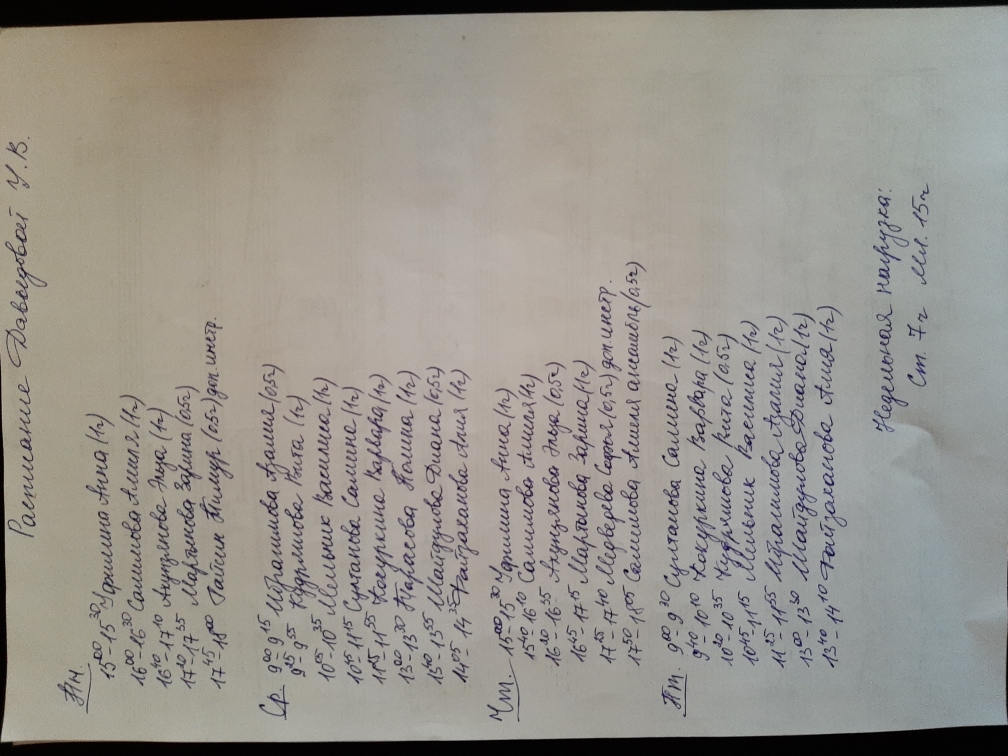 Расписание Давыдовой У.В.
Пн.
15⁰⁰-15³⁰ Уфилина Анна (1ч)
16⁰⁰-16³⁰ Салимова Амиля (1ч)
16⁴⁰-17¹⁰ Ахунзянова Эльза (1ч)
17²⁰-17³⁵ Мартынова Зарина (0,5ч)
17⁴⁵-18⁰⁰ Гайсин Тимур (0,5ч) доп.инстр.
Ср
9⁰⁰-9¹⁵ Ибрагимова Азалия (0,5ч)
9²⁵-9⁵⁵ Кудрявцева Рита (1ч)
10⁰⁵-10³⁵ Мельник Василиса (1ч)
10⁴⁵-11¹⁵ Султанова Салмина (1ч)
11²⁵-11⁵⁵ Кокуркина Варвара (1ч)
13⁰⁰-13³⁰ Тарасова Полина (1ч)
13⁴⁰-13⁵⁵ Шайдулова Диана (0,5ч)
14⁰⁵-14³⁵ Файзраханова Алия (1ч)
Чт.
15⁰⁰-15³⁰ Уфилина Анна (1ч)
15⁴⁰-16¹⁰ Салимова Амиля (1ч)
16²⁰-16³⁵ Ахунзянова Эльза (0,5ч)
16⁴⁵-17¹⁵ Мартынова Зарина (1ч)
17²⁵-17⁴⁰ София (0,5ч) доп.инстр.
17⁵⁰-18⁰⁵ Салимова Амиля ансамбль (0,5ч)
Пт.
9⁰⁰-9³⁰ Султанова Салмина (1ч)
9⁴⁰-10¹⁰ Кокуркина Варвара (1ч)
10²⁰-10³⁵ Кудрявцева Рита (0,5ч)
10⁴⁵-11¹⁵ Мельник Василиса (1ч)
11²⁵-11⁵⁵ Ибрагимова Азалия (1ч)
13⁰⁰-13³⁰ Шайдулова Диана (1ч)
13⁴⁰-14¹⁰ Файзраханова Алия (1ч)
Недельная нагрузка:
Ст. 7ч Мл. 15ч